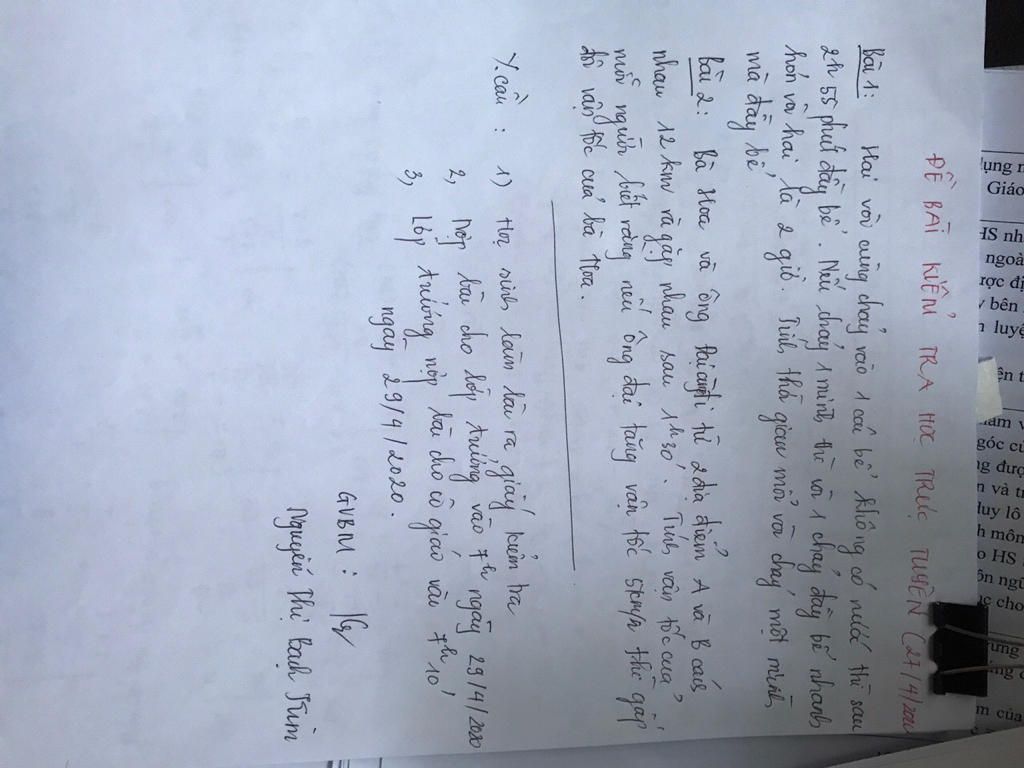 ĐỀ BÀI KIỂM TRA HỌC TRỰC TUYẾN (27/4/2020
Bài 1: Hai vòi cùng chảy vào 1 cái bể không có nước thì sau
2h 55 phút đầy bể. Nếu chảy 1 mình thì vòi 1 chảy đầy bể nhanh
hơn vòi hai là 2 giờ. Tính thờ gian mỗi vòi chảy một mình
mà đầy bể
Bài 2: Bà Hoa và ông Đại từ 2 địa điểm A và B cách
nhau 12 km và gặp nhau sau 1h30'. Tính vận tốc của
mỗi người biết rằng nếu ông đại tăng vận tốc 5km/h thì gấp
đôi vận tốc của bà Hoa.
Y. cầu : 1) Học sinh làm bài ra giấy kiểm tra
2, Nộp bài cho lớp trưởng vào 7h ngày 29/4/2020
3, Lớp trưởng nộp bài cho cô giáo vào 7h10'
ngày 29/4/2020.
GVBM :
Nguyễn Thị Bạch Kim
dụng
Giáo
HS nh
ngoà
bên
luyệ
góc
được
HS